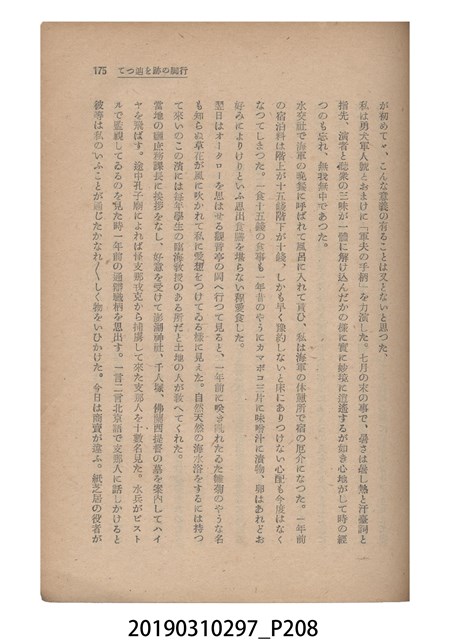 行脚の跡を追つて 175
が初めてで、こんな意義の有ることは又とないと思つた、
私は勇犬軍人號とおまけに「軍夫の手柄」を力演した。七月の末の事で、暑さは最し熱と汗臺詞と
指先、演者と聽衆の三味が一體に解け込んだかの様に實に妙境に逍遙するが如き心地がして時の經
つのも忘れ、無我無中であつた。
水交社で海軍の晩餐に呼ばれて風呂に入れて貰ひ、私は海軍の休憩所で宿の厄介になつた。一年前
の宿泊料は階上が十五錢階下が十錢、しかも早く豫約しないと床にありつけない心配も今度はなく
なつてしまつた。一食十五錢の食事も一年昔のやうにカマボコ三片に味噌汁に漬物、卵はあれどお
好みによりけりといふ思出食膳を堪らない程愛食した。
翌日はオータローを思はせる觀音亭の岡へ行つて見ると、一年前に咲き亂れたる矮菊のやうな名
も知らぬ草花が風に吹かれて私に愛想をつけてゐる様に見えた。自然天然の海水浴をするには持つ
て來いのこの濱には毎年學生の臨海教授のある所だと土地の人が敎へてくれた。
當地の廳庶務課長に挨拶をなし、好意を受けて澎湖神社、千人塚、佛蘭西提督の墓を案內してハイ
ヤを飛ばす。途中孔子廟によれば怪支那戎克から捕虜して來た支那人を十數名見た。水兵がピスト
ルで監視してゐるのを見た時一年前の通譯職柄を思出す。一言二言北京語で支那人に話しかけると
彼等は私のいふことが通じたかなれ〳〵しく物をいひかけた。今日は商賣が違ふ。紙芝居の役者が
20190310297_P208